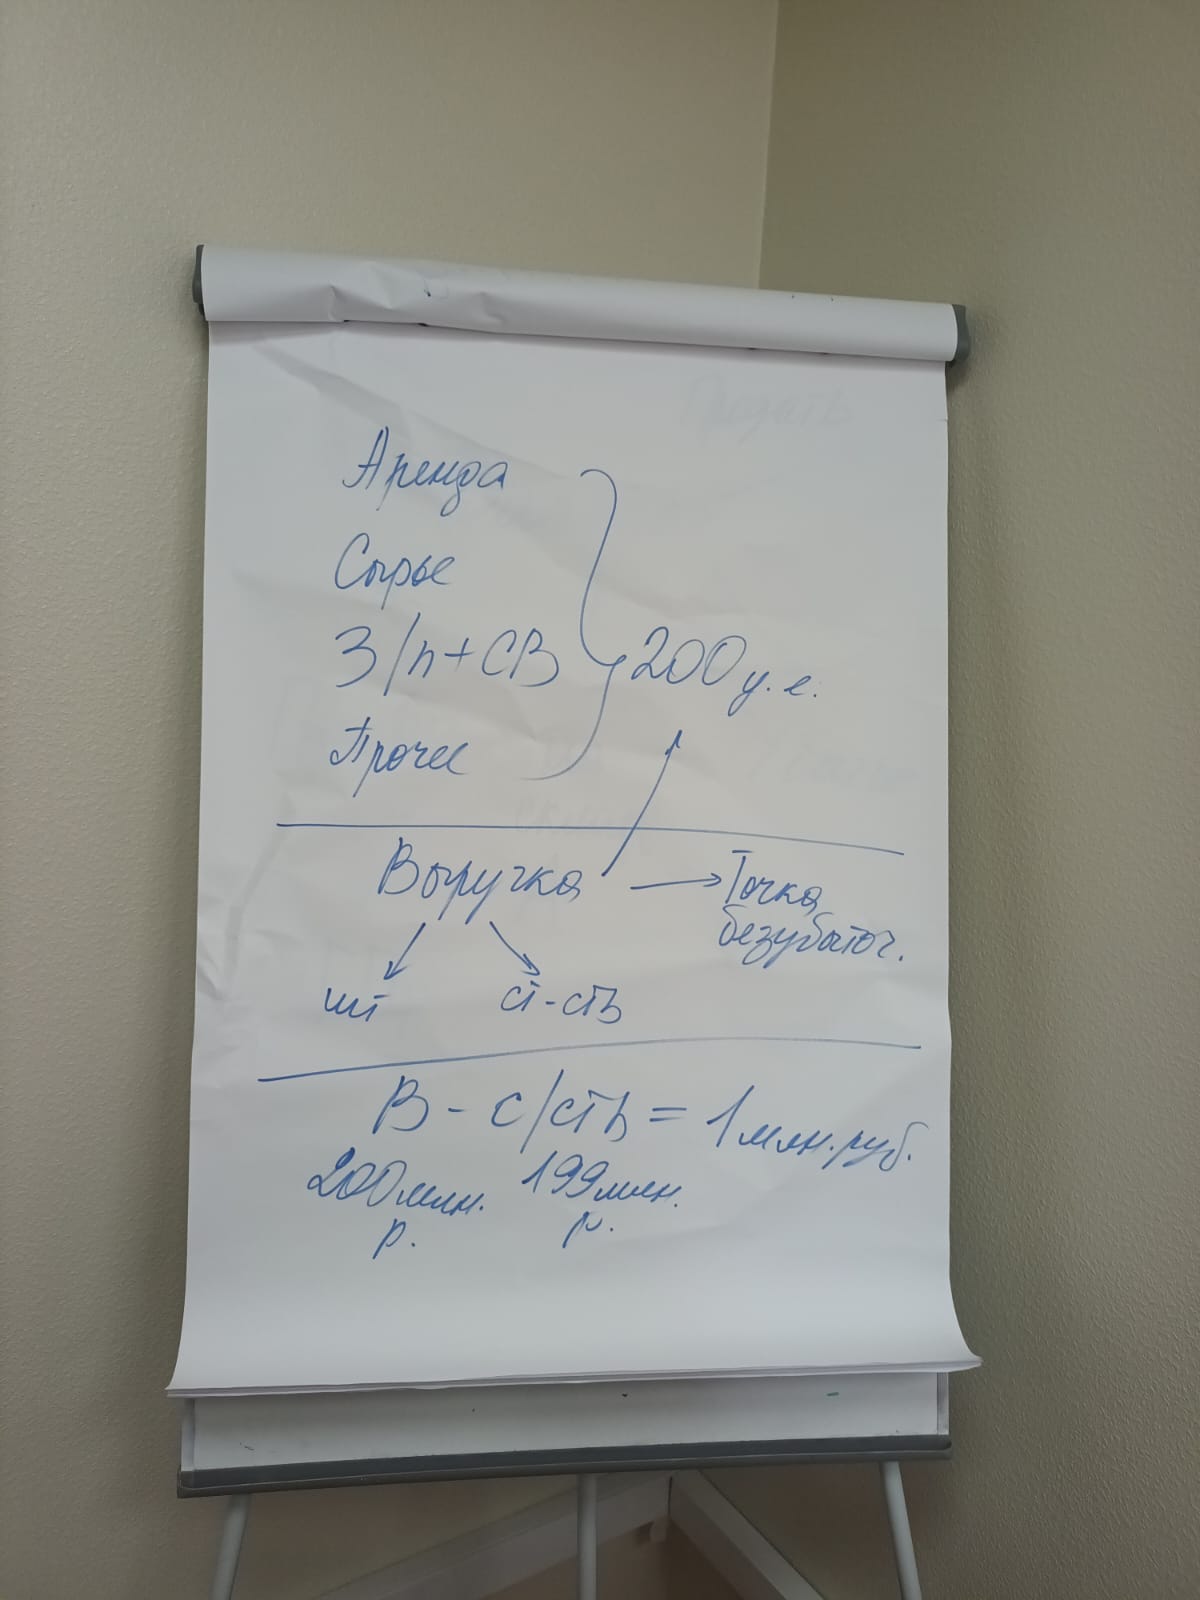 Аренда
Сырье
З/п+СВ
200 у.е.
Прочее
Выручка
Точка
безубыточ.
шт
ст-сть
В - с/сть = 1 млн. руб.
200 млн. 199 млн.
р. р.